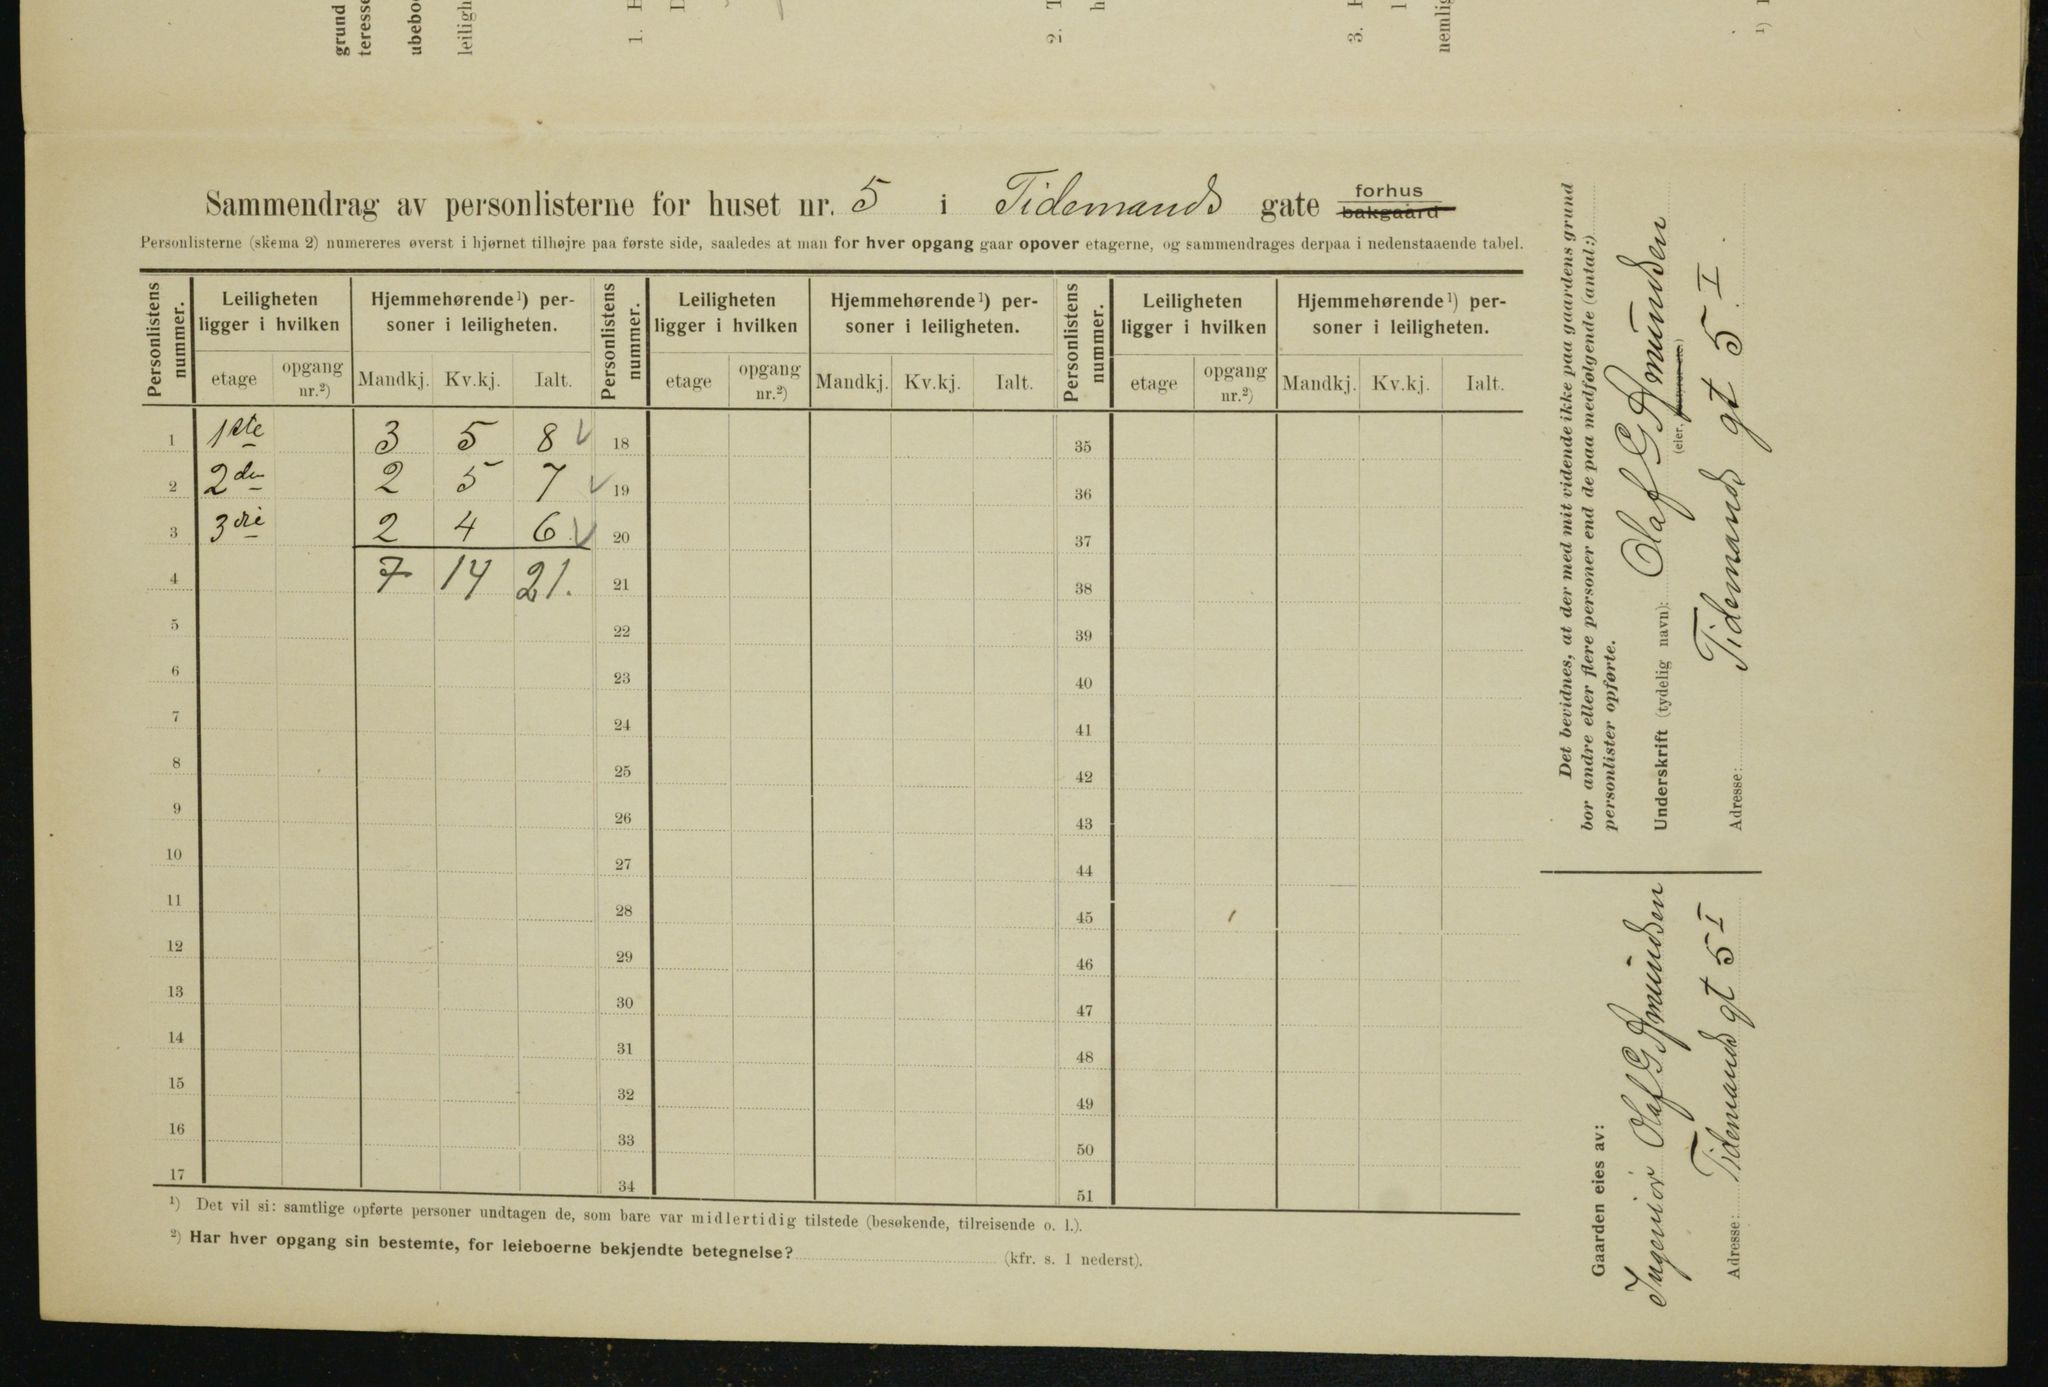 grund
teresse
ubebo
leiligh
1. H
2. T
3. H
nemlig
Sammendrag av personlisterne for huset nr. 5 i Tidemands gate forhus
bakgaard
Personlisterne (skema 2) numereres øverst i hjørnet tilhøjre paa første side, saaledes at man for hver opgang gaar opover etagerne, og sammendrages derpaa i nedenstaaende tabel.
Personlistens nummer. Leiligheten ligger i hvilken Hjemmehørende¹) personer i leiligheten. Personlistens nummer. Leiligheten ligger i hvilken Hjemmehørende¹) personer i leiligheten. Personlistens nummer. Leiligheten ligger i hvilken Hjemmehørende¹) personer i leiligheten.
etage opgang nr.²) Mandkj. Kv.kj. Ialt. etage opgang nr.²) Mandkj. Kv.kj. Ialt. etage opgang nr.²) Mandkj. Kv.kj. Ialt.
1 1ste 3 5 8 18 35
2 2den 2 5 7 19 36
3 3die 2 4 6 20 37
4 7 14 21. 21 38
5 22 39
6 23 40
7 24 41
8 25 42
9 26 43
10 27 44
11 28 45
12 29 46
13 30 47
14 31 48
15 32 49
16 33 50
17 34 51
¹) Det vil si: samtlige opførte personer undtagen de, som bare var midlertidig tilstede (besøkende, tilreisende o. l.).
²) Har hver opgang sin bestemte, for leieboerne bekjendte betegnelse? (kfr. s. 1 nederst).
Det bevidnes, at der med mit vidende ikke paa gaardens grund
bor andre eller flere personer end de paa medfølgende (antal:)
personlister opførte.
Underskrift (tydelig navn): Olaf G Amundsen
(eier,
Adresse: Tidemands gt 5. I.
Gaarden eies av:
Ingeniør Olaf G Amundsen
Adresse: Tidemands gt 5 I